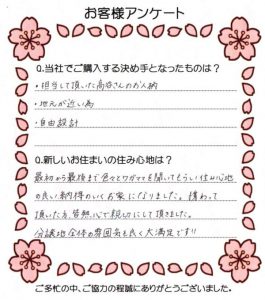 お客様アンケート
Q.当社でご購入する決め手となったものは?
・担当して頂いた高谷さんのお人柄
・地元が近い為
・自由設計
Q.新しいお住まいの住み心地は?
最初から最後まで色々とワガママを聞いてもらい住み心地
の良い納得のいくお家になりました。携わって
頂いた方、皆熱心で親切にして頂きました。
分譲地全体の雰囲気も良く大満足です!!
ご多忙の中、ご協力の程誠にありがとうございました。